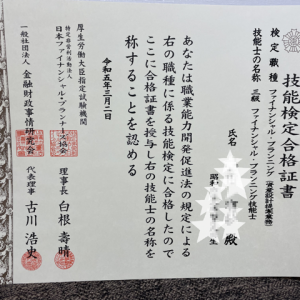 技能検定合格証書
検定職種 ファイナンシャル・プランニング(資産設計提案業務)
技能士の名称 三級 ファイナンシャル・プランニング技能士
氏名 殿
昭和 生
あなたは職業能力開発促進法の規定による
右の職種に係る技能検定に合格したので
ここに合格証書を授与し右の技能士の名称を
称することを認める
令和五年三月二日
厚生労働大臣指定試験機関
特定非営利活動法人
日本ファイナンシャル・プランナーズ協会
理事長 白根壽晴
一般社団法人 金融財政事情研究会
代表理事 古川浩史